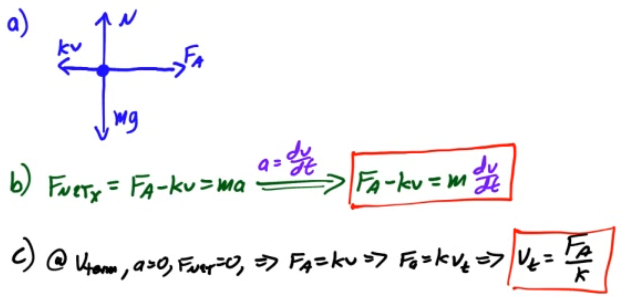 a)
N
kv
F_A
mg
b) F_NETx = F_A - kv = ma a = dv/dt ⟹ F_A - kv = m dv/dt
c) @ v_term, a=0, F_NET=0, ⇒ F_A = kv ⇒ F_A = kv_t ⇒ v_t = F_A/k